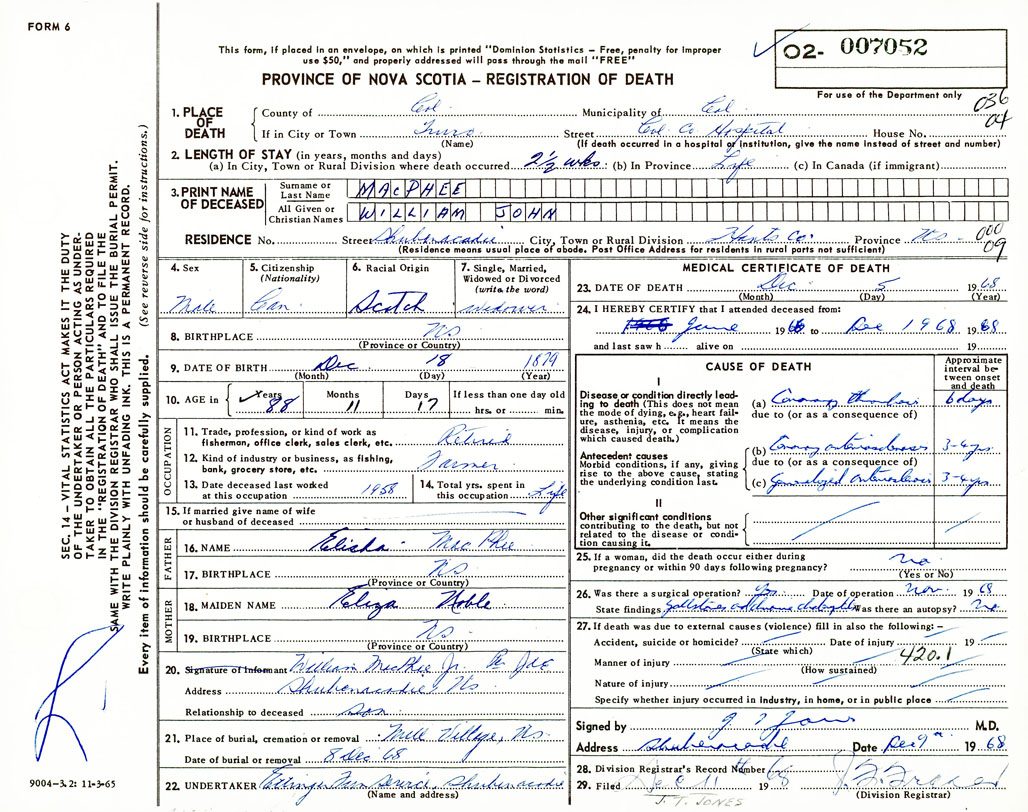 FORM 6
This form, if placed in an envelope, on which is printed "Dominion Statistics – Free, penalty for improper
use $50," and properly addressed will pass through the mail "FREE"
O2- 007052
PROVINCE OF NOVA SCOTIA – REGISTRATION OF DEATH
For use of the Department only
036
04
1. PLACE OF DEATH
County of Col. Municipality of Col.
If in City or Town Truro Street Col. Co Hospital House No.
(Name) (If death occurred in a hospital or institution, give the name instead of street and number)
2. LENGTH OF STAY (in years, months and days)
(a) In City, Town or Rural Division where death occurred 2½ wks. (b) In Province Life (c) In Canada (if immigrant)
3. PRINT NAME OF DECEASED
Surname or Last Name MACPHEE
All Given or Christian Names WILLIAM JOHN
RESIDENCE No. Street Shubenacadie City, Town or Rural Division Hants Co. Province NS
(Residence means usual place of abode. Post Office Address for residents in rural parts not sufficient)
000
09
4. Sex Male
5. Citizenship (Nationality) Can
6. Racial Origin Scotch
7. Single, Married, Widowed or Divorced (write the word) widower
8. BIRTHPLACE NS
(Province or Country)
9. DATE OF BIRTH Dec 18 1879
(Month) (Day) (Year)
10. AGE in Years 88 Months 11 Days 17 If less than one day old hrs. or min.
OCCUPATION
11. Trade, profession, or kind of work as fisherman, office clerk, sales clerk, etc. Retired
12. Kind of industry or business, as fishing, bank, grocery store, etc. Farmer
13. Date deceased last worked at this occupation 1958
14. Total yrs. spent in this occupation Life
15. If married give name of wife or husband of deceased
FATHER
16. NAME Elisha MacPhee
17. BIRTHPLACE NS
(Province or Country)
MOTHER
18. MAIDEN NAME Eliza Noble
19. BIRTHPLACE NS
(Province or Country)
20. Signature of informant William MacPhee Jr. Per
Address Shubenacadie, NS
Relationship to deceased son
21. Place of burial, cremation or removal Mill Village, NS.
Date of burial or removal 8 Dec '68
22. UNDERTAKER Ettinger Fun Service Shubenacadie
(Name and address)
MEDICAL CERTIFICATE OF DEATH
23. DATE OF DEATH Dec 5 1968
(Month) (Day) (Year)
24. I HEREBY CERTIFY that I attended deceased from:
June 1966 to Dec 1968 1968
and last saw h alive on 19
CAUSE OF DEATH
Approximate interval between onset and death
I
Disease or condition directly leading to death (This does not mean the mode of dying, e.g., heart failure, asthenia, etc. It means the disease, injury, or complication which caused death.)
(a) Coronary thrombosis 6 days
due to (or as a consequence of)
Antecedent causes
Morbid conditions, if any, giving rise to the above cause, stating the underlying condition last.
(b) Coronary arteriosclerosis 3-4 yrs
due to (or as a consequence of)
(c) Generalized arteriosclerosis 3-4 yrs
II
Other significant conditions contributing to the death, but not related to the disease or condition causing it.
25. If a woman, did the death occur either during pregnancy or within 90 days following pregnancy? no
(Yes or No)
26. Was there a surgical operation? Yes Date of operation Nov. 1968
State findings Gallstones Was there an autopsy? No
27. If death was due to external causes (violence) fill in also the following: –
Accident, suicide or homicide? Date of injury 19
(State which)
420.1
Manner of injury
(How sustained)
Nature of injury
Specify whether injury occurred in industry, in home, or in public place
Signed by M.D.
Address Shubenacadie Date Dec 9th 1968
28. Division Registrar's Record Number
29. Filed Dec 11 1968
(Division Registrar)
J. T. JONES
SEC. 14 – VITAL STATISTICS ACT MAKES IT THE DUTY
OF THE UNDERTAKER OR PERSON ACTING AS UNDER-
TAKER TO OBTAIN ALL THE PARTICULARS REQUIRED
IN THE "REGISTRATION OF DEATH" AND TO FILE THE
SAME WITH THE DIVISION REGISTRAR WHO SHALL ISSUE THE BURIAL PERMIT.
WRITE PLAINLY WITH UNFADING INK. THIS IS A PERMANENT RECORD.
Every item of information should be carefully supplied. (See reverse side for instructions.)
9004–3.2: 11-3-65